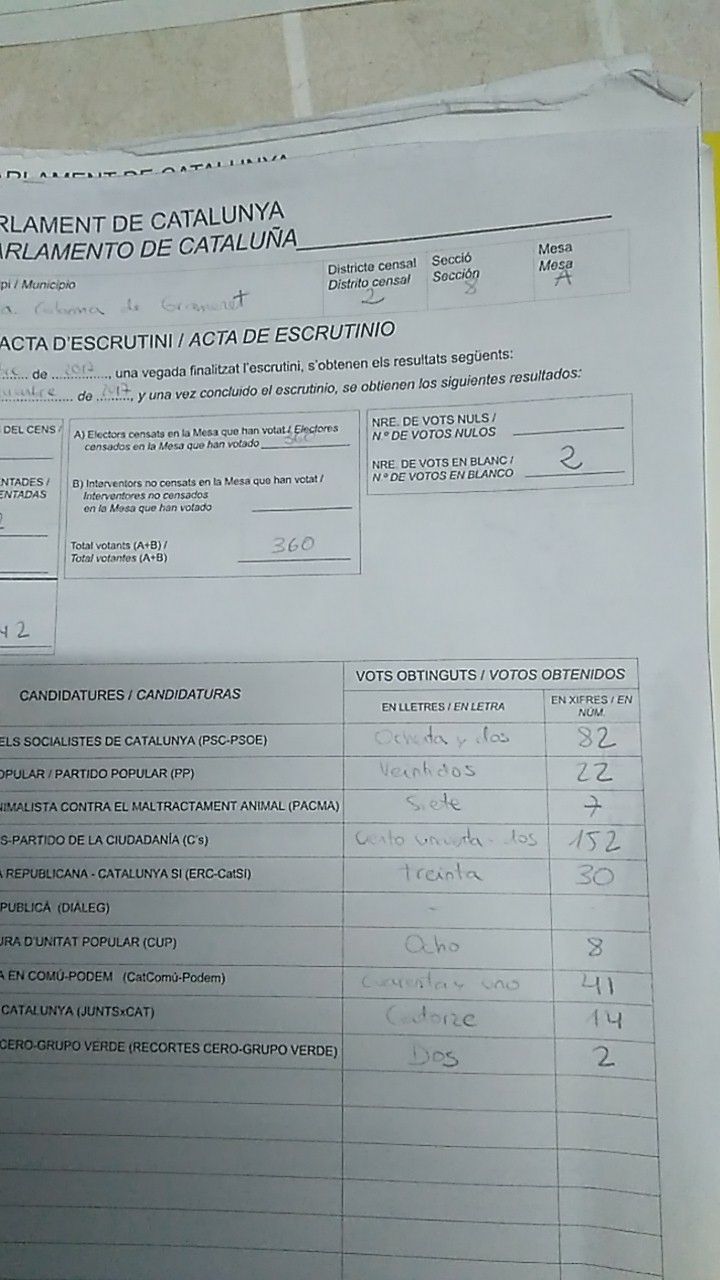 PARLAMENT DE CATALUNYA
RLAMENT DE CATALUNYA
ARLAMENTO DE CATALUÑA
pi / Municipio
a. Coloma de Gramenet
Districte censal
Distrito censal
2
Secció
Sección
8
Mesa
Mesa
A
ACTA D'ESCRUTINI / ACTA DE ESCRUTINIO
bre de 2017, una vegada finalitzat l'escrutini, s'obtenen els resultats següents:
de 2017, y una vez concluido el escrutinio, se obtienen los siguientes resultados:
DEL CENS /
A) Electors censats en la Mesa que han votat / Electores
censados en la Mesa que han votado 360
NTADES /
ENTADAS
B) Interventors no censats en la Mesa que han votat /
Interventores no censados
en la Mesa que han votado
Total votants (A+B) /
Total votantes (A+B)
360
42
NRE. DE VOTS NULS /
N º DE VOTOS NULOS
NRE. DE VOTS EN BLANC /
N º DE VOTOS EN BLANCO
2
CANDIDATURES / CANDIDATURAS
VOTS OBTINGUTS / VOTOS OBTENIDOS
EN LLETRES / EN LETRA
EN XIFRES / EN
NÚM.
ELS SOCIALISTES DE CATALUNYA (PSC-PSOE) Ochenta y dos 82
OPULAR / PARTIDO POPULAR (PP) Veintidos 22
NIMALISTA CONTRA EL MALTRACTAMENT ANIMAL (PACMA) Siete 7
S-PARTIDO DE LA CIUDADANÍA (C's) 152
A REPUBLICANA - CATALUNYA SI (ERC-CatSí) treinta 30
PUBLICÀ (DIÀLEG) -
URA D'UNITAT POPULAR (CUP) Ocho 8
A EN COMÚ-PODEM (CatComú-Podem) Cuarenta y uno 41
CATALUNYA (JUNTSxCAT) Catorze 14
CERO-GRUPO VERDE (RECORTES CERO-GRUPO VERDE) Dos 2